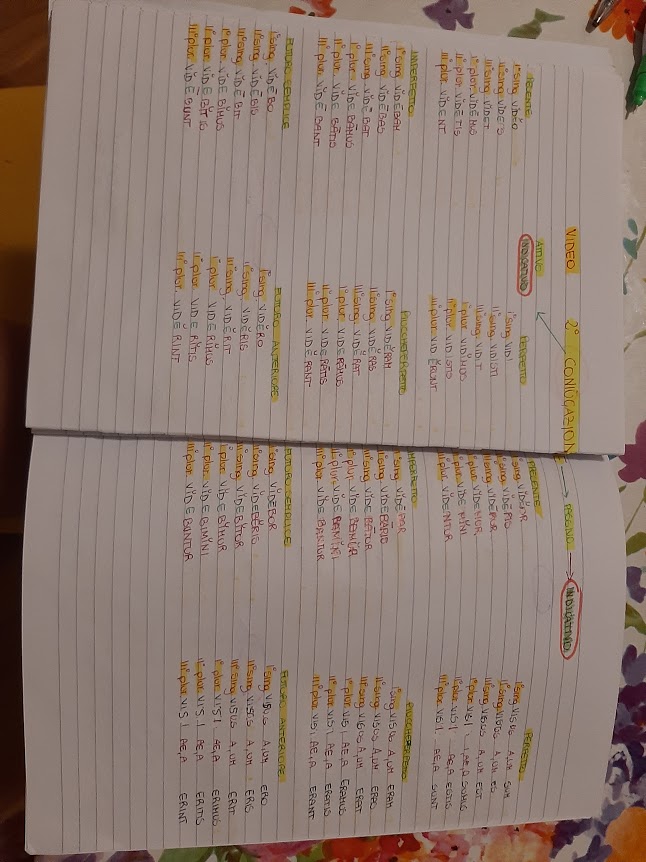 VIDEO 2° CONIUGAZIONE
ATTIVO
INDICATIVO
PRESENTE
I° sing VIDĔO
II° sing VIDĒS
III° sing VIDĔT
I° plur VIDĒMUS
II° plur VIDĒTIS
III° plur VIDENT
PERFETTO
I° sing VIDI
II° sing VIDISTI
III° sing VIDIT
I° plur VIDIMUS
II° plur VIDISTIS
III° plur VIDĒRUNT
IMPERFETTO
I° sing VIDĒBAM
II° sing VIDĒBAS
III° sing VIDĒBAT
I° plur VIDEBĀMUS
II° plur VIDEBĀTIS
III° plur VIDĒBANT
PIUCCHEPERFETTO
I° sing VIDĔRAM
II° sing VIDĔRAS
III° sing VIDĔRAT
I° plur VIDERAMUS
II° plur VIDERATIS
III° plur VIDĔRANT
FUTURO SEMPLICE
I° sing VIDĒBO
II° sing VIDĒBIS
III° sing VIDĒBIT
I° plur VIDĒBIMUS
II° plur VIDĒBITIS
III° plur VIDĒBUNT
FUTURO ANTERIORE
I° sing VIDĔRO
II° sing VIDĔRIS
III° sing VIDĔRIT
I° plur VIDERĬMUS
II° plur VIDERĬTIS
III° plur VIDĔRINT
PASSIVO
INDICATIVO
PRESENTE
I° sing VIDĔOR
II° sing VIDĒRIS
III° sing VIDETUR
I° plur VIDEMUR
II° plur VIDEMĬNI
III° plur VIDENTUR
PERFETTO
I° sing VISUS A, UM SUM
II° sing VISUS A, UM ES
III° sing VISUS A, UM EST
I° plur VISI AE, A SUMUS
II° plur VISI AE, A ESTIS
III° plur VISI AE, A SUNT
IMPERFETTO
I° sing VIDĒBAR
II° sing VIDEBARIS
III° sing VIDEBATUR
I° plur VIDEBAMUR
II° plur VIDEBAMĬNI
III° plur VIDEBANTUR
PIUCCHEPERFETTO
I° sing VISUS A, UM ERAM
II° sing VISUS A, UM ERAS
III° sing VISUS A, UM ERAT
I° plur VISI AE, A ERAMUS
II° plur VISI AE, A ERATIS
III° plur VISI AE, A ERANT
FUTURO SEMPLICE
I° sing VIDEBOR
II° sing VIDEBĔRIS
III° sing VIDEBĬTUR
I° plur VIDEBĬMUR
II° plur VIDEBIMĬNI
III° plur VIDEBUNTUR
FUTURO ANTERIORE
I° sing VISUS A, UM ERO
II° sing VISUS A, UM ERIS
III° sing VISUS A, UM ERIT
I° plur VISI AE, A ERIMUS
II° plur VISI AE, A ERITIS
III° plur VISI AE, A ERINT